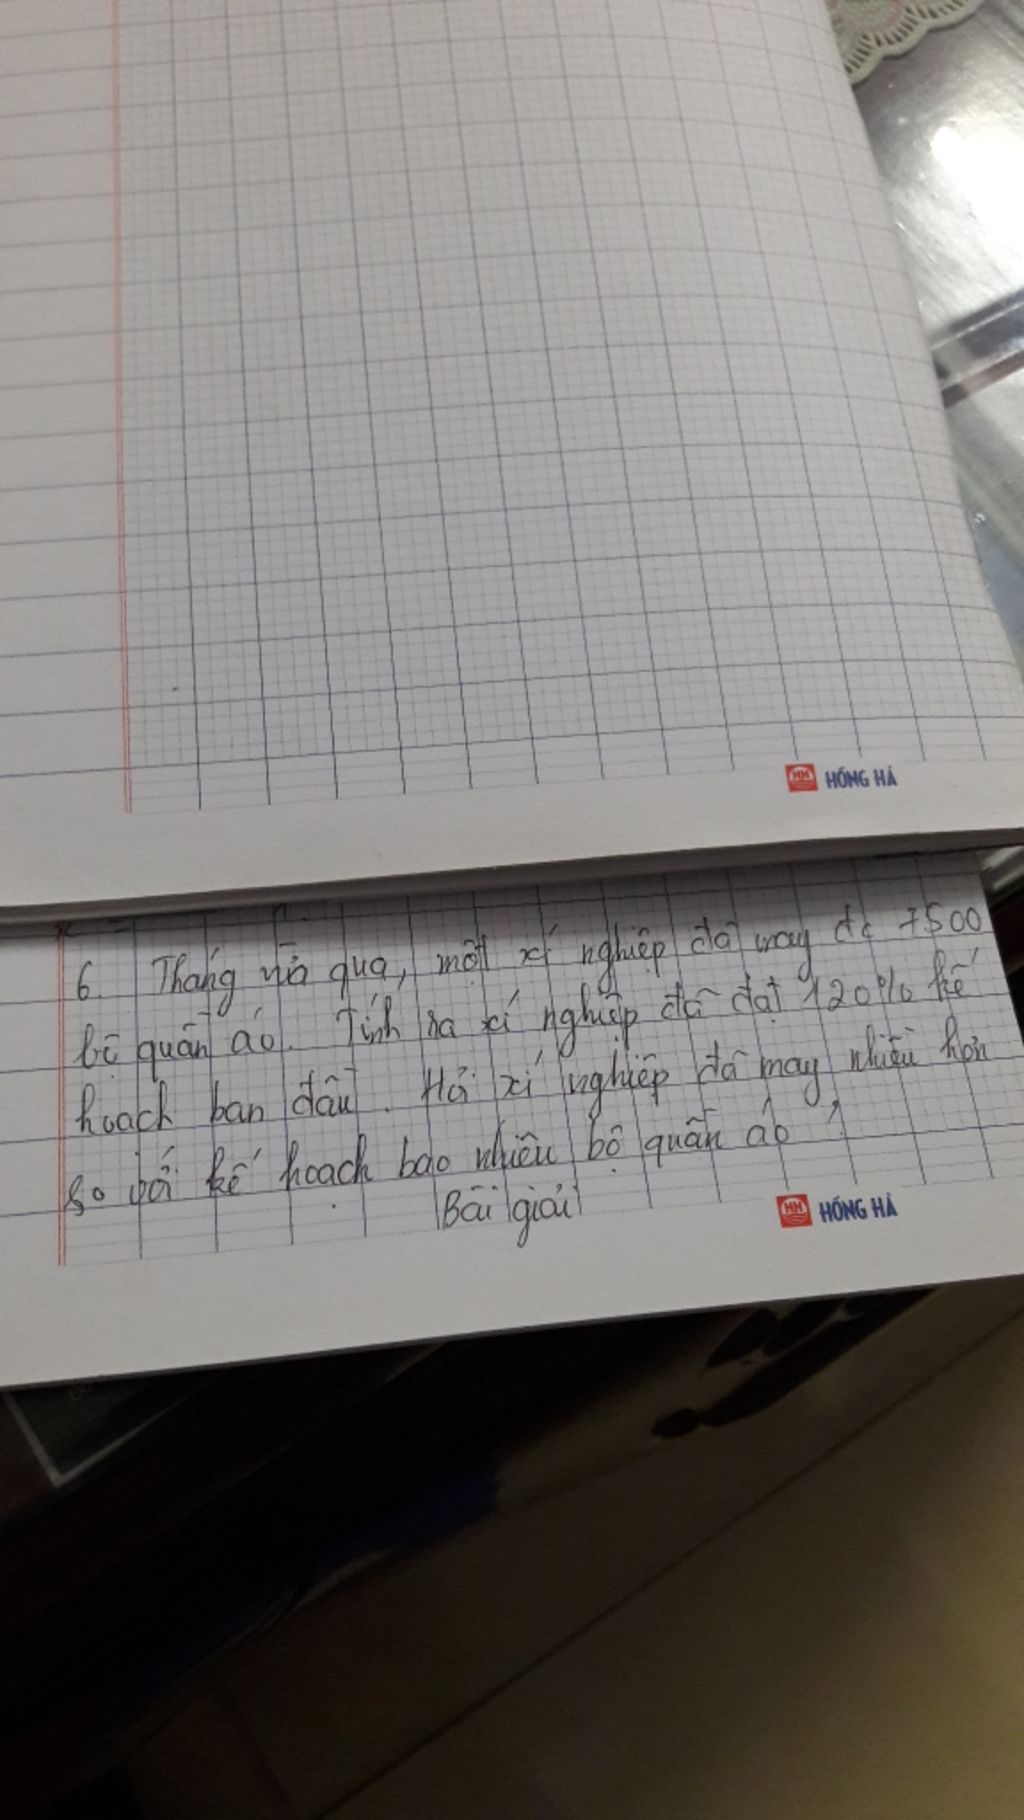 HH HỒNG HÀ
6. Tháng vừa qua, một xí nghiệp đã may đc 7500
bộ quần áo. Tính ra xí nghiệp đã đạt 120% kế
hoạch ban đầu. Hỏi xí nghiệp đã may nhiều hơn
so với kế hoạch bao nhiêu bộ quần áo?
Bài giải
HH HỒNG HÀ